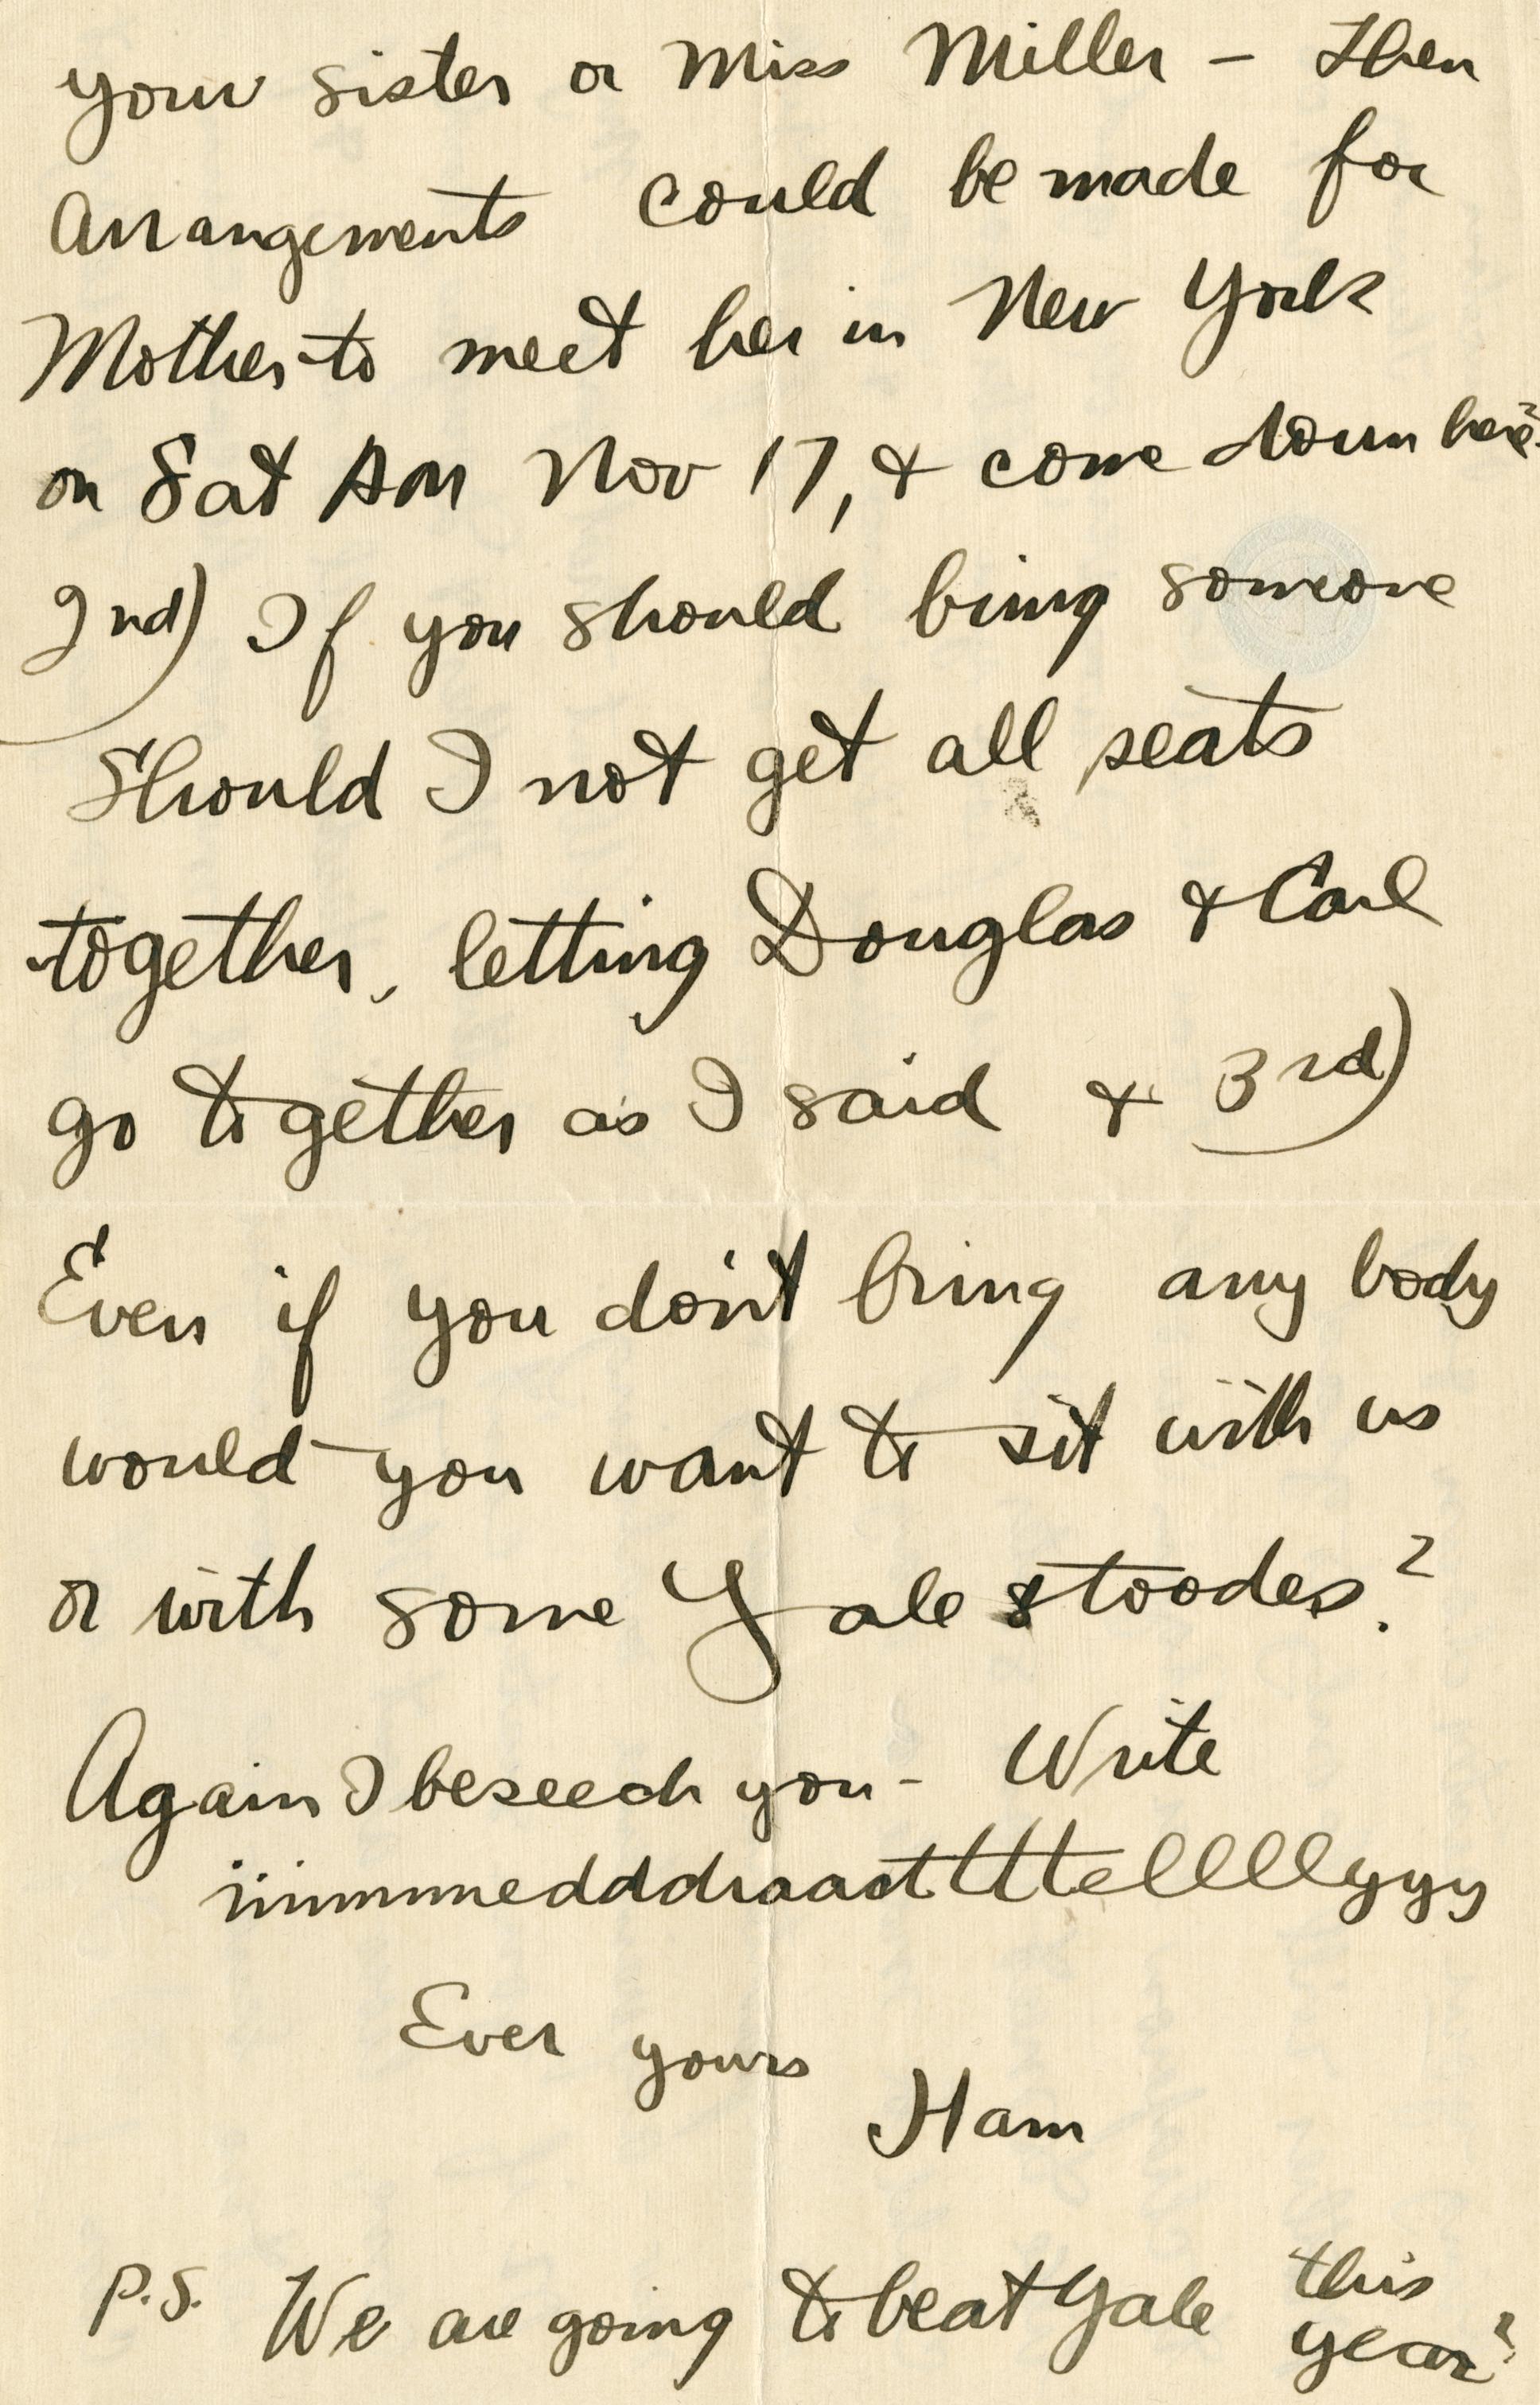 your sister or Miss Miller – then
Arrangements could be made for
Mother to meet her in New York
on Sat AM Nov 17, & come down here?
2nd) If you should bring someone
Should I not get all seats
together, letting Douglas & Carl
go together as I said & 3rd)
Even if you don't bring any body
would you want to sit with us
or with some Yale stoodes?
Again I beseech you – Write
iiimmmedddiaaattttellllyyy
Ever yours
Ham
P.S. We are going to beat Yale this
year?